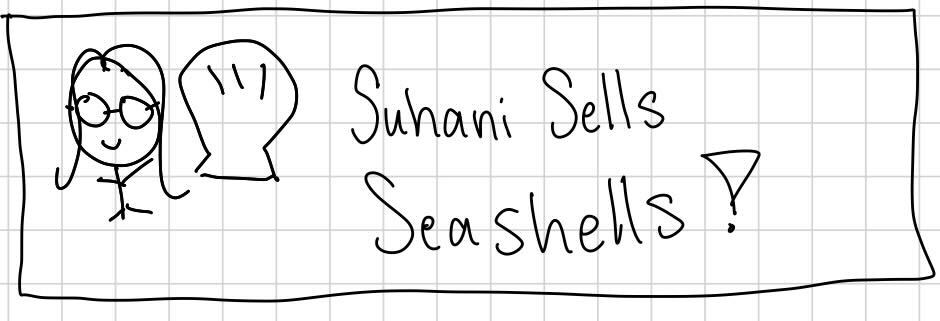 Suhani Sells
Seashells!